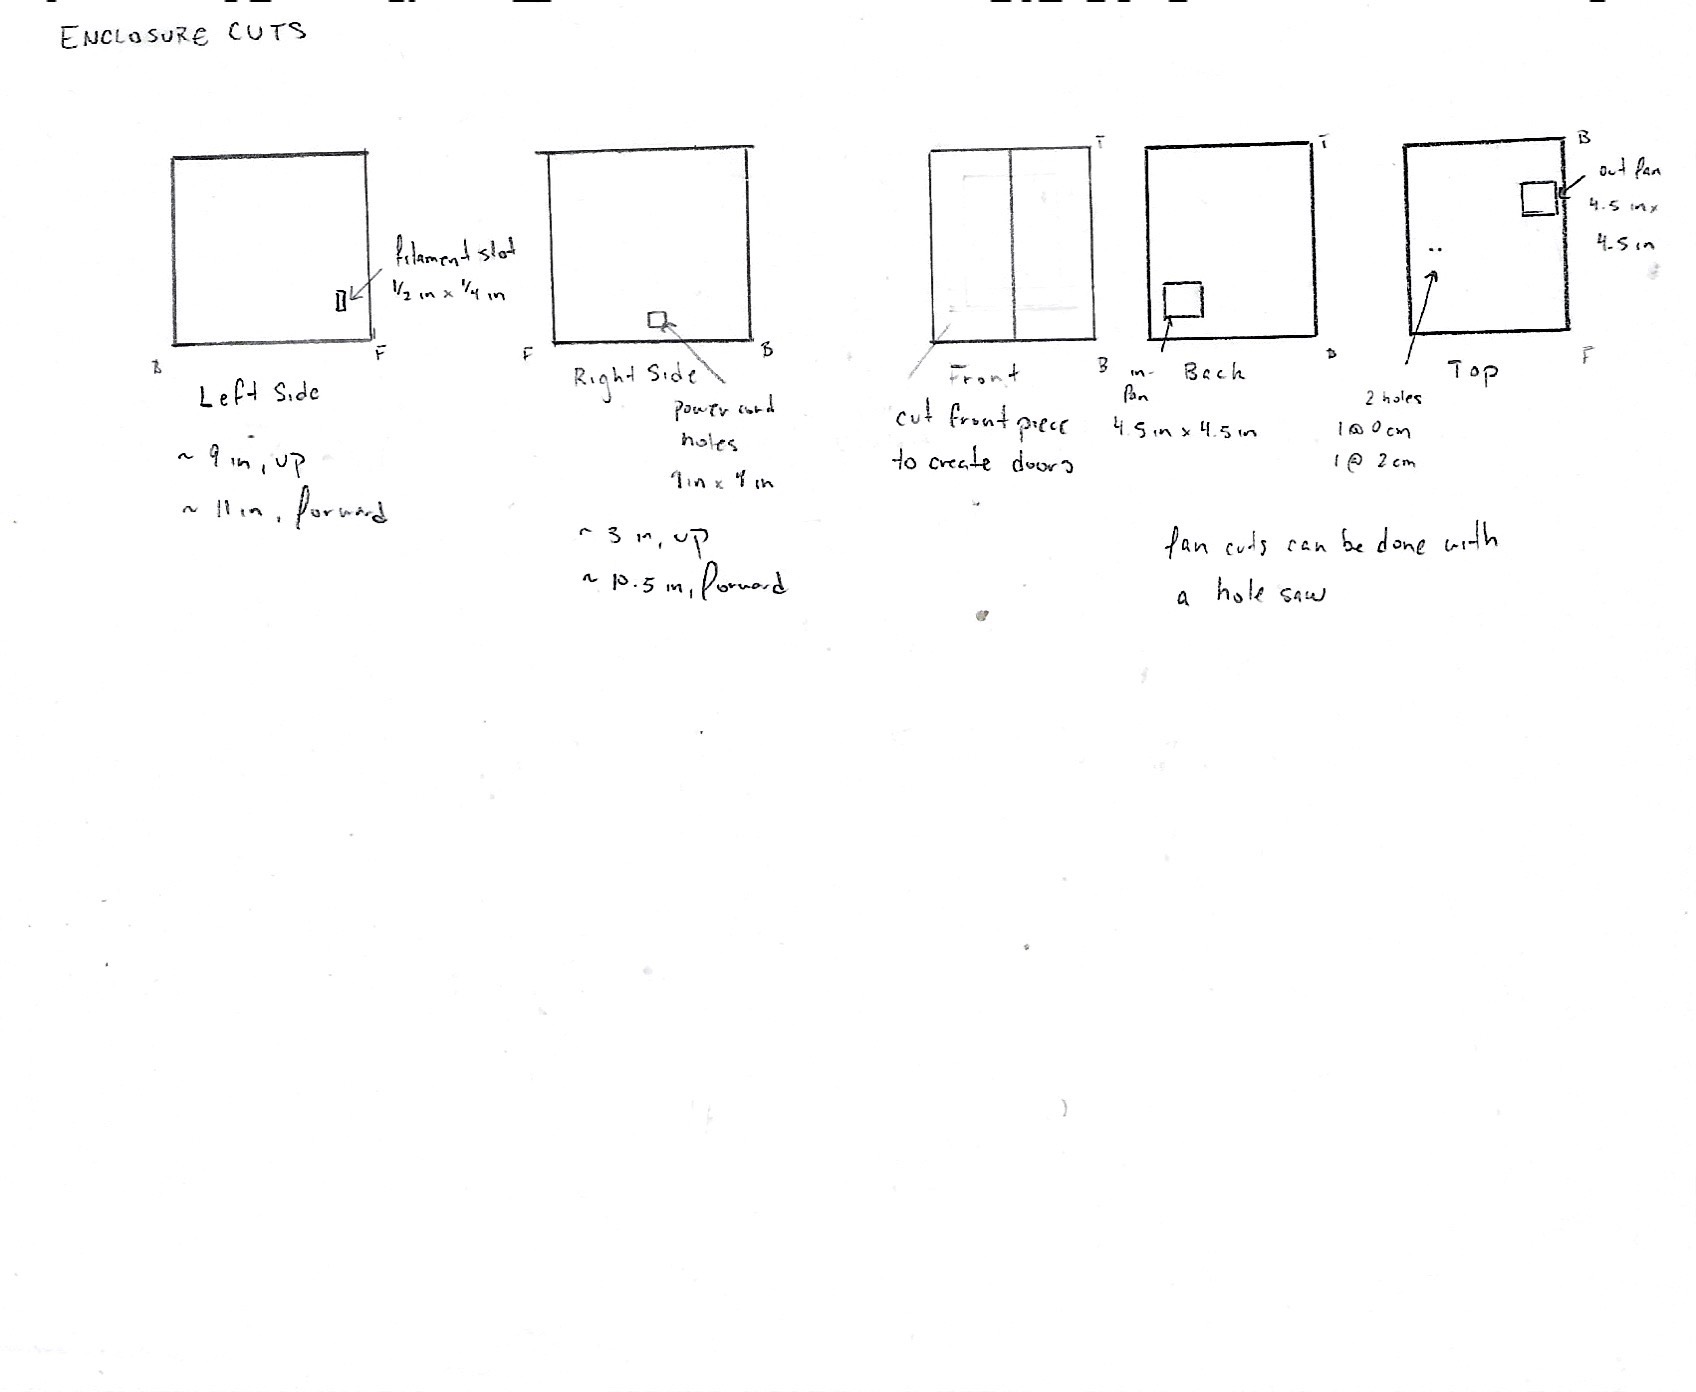 ENCLOSURE CUTS
B
F
filament slot
1/2 in x 1/4 in
Left Side
~ 9 in, up
~ 11 in, forward
F
B
Right Side
power cord
holes
~ 3 in, up
~ 10.5 in, forward
T
B
Front
cut front piece
to create doors
T
B
in-
fan
Back
4.5 in x 4.5 in
B
F
out fan
4.5 in x
4.5 in
Top
2 holes
1 @ 0 cm
1 @ 2 cm
fan cuts can be done with
a hole saw